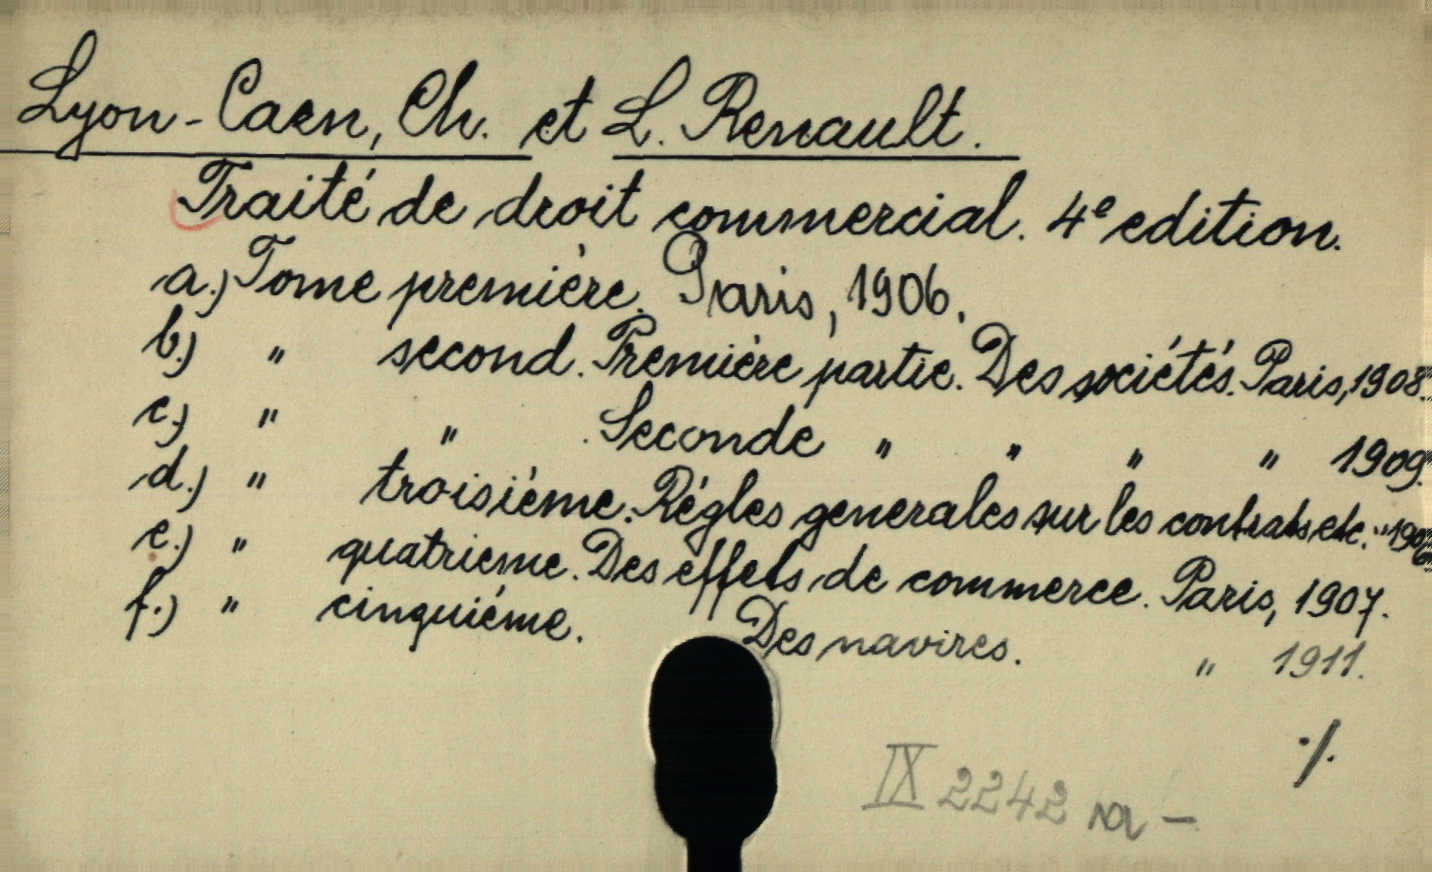 Lyon-Caen, Ch. et L. Renault.
Traité de droit commercial. 4e edition.
a.) Tome première. Paris, 1906.
b.) " second. Première partie. Des sociétés. Paris, 1908.
c.) " " Seconde " " " " 1909.
d.) " troisième. Régles generales sur les contrats etc. " 1906
e.) " quatrieme. Des effets de commerce. Paris, 1907.
f.) " cinquiéme. Des navires. " 1911.
./.
IX 2242